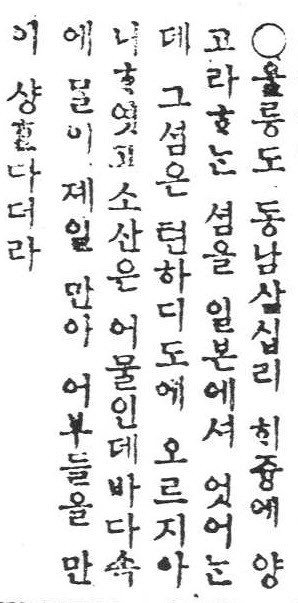 ○울릉도 동남삼십리 ᄒᆡ즁에 양
고라ᄒᆞᄂᆞᆫ 셤을 일본에셔 엇어ᄂᆞᆫ
데 그 셤은 텬하디도에 오르지아
니ᄒᆞ엿고 소산은 어물인데 바다속
에 믈이 제일 만아 어부들을 만
이 샹ᄒᆞᆫ다더라